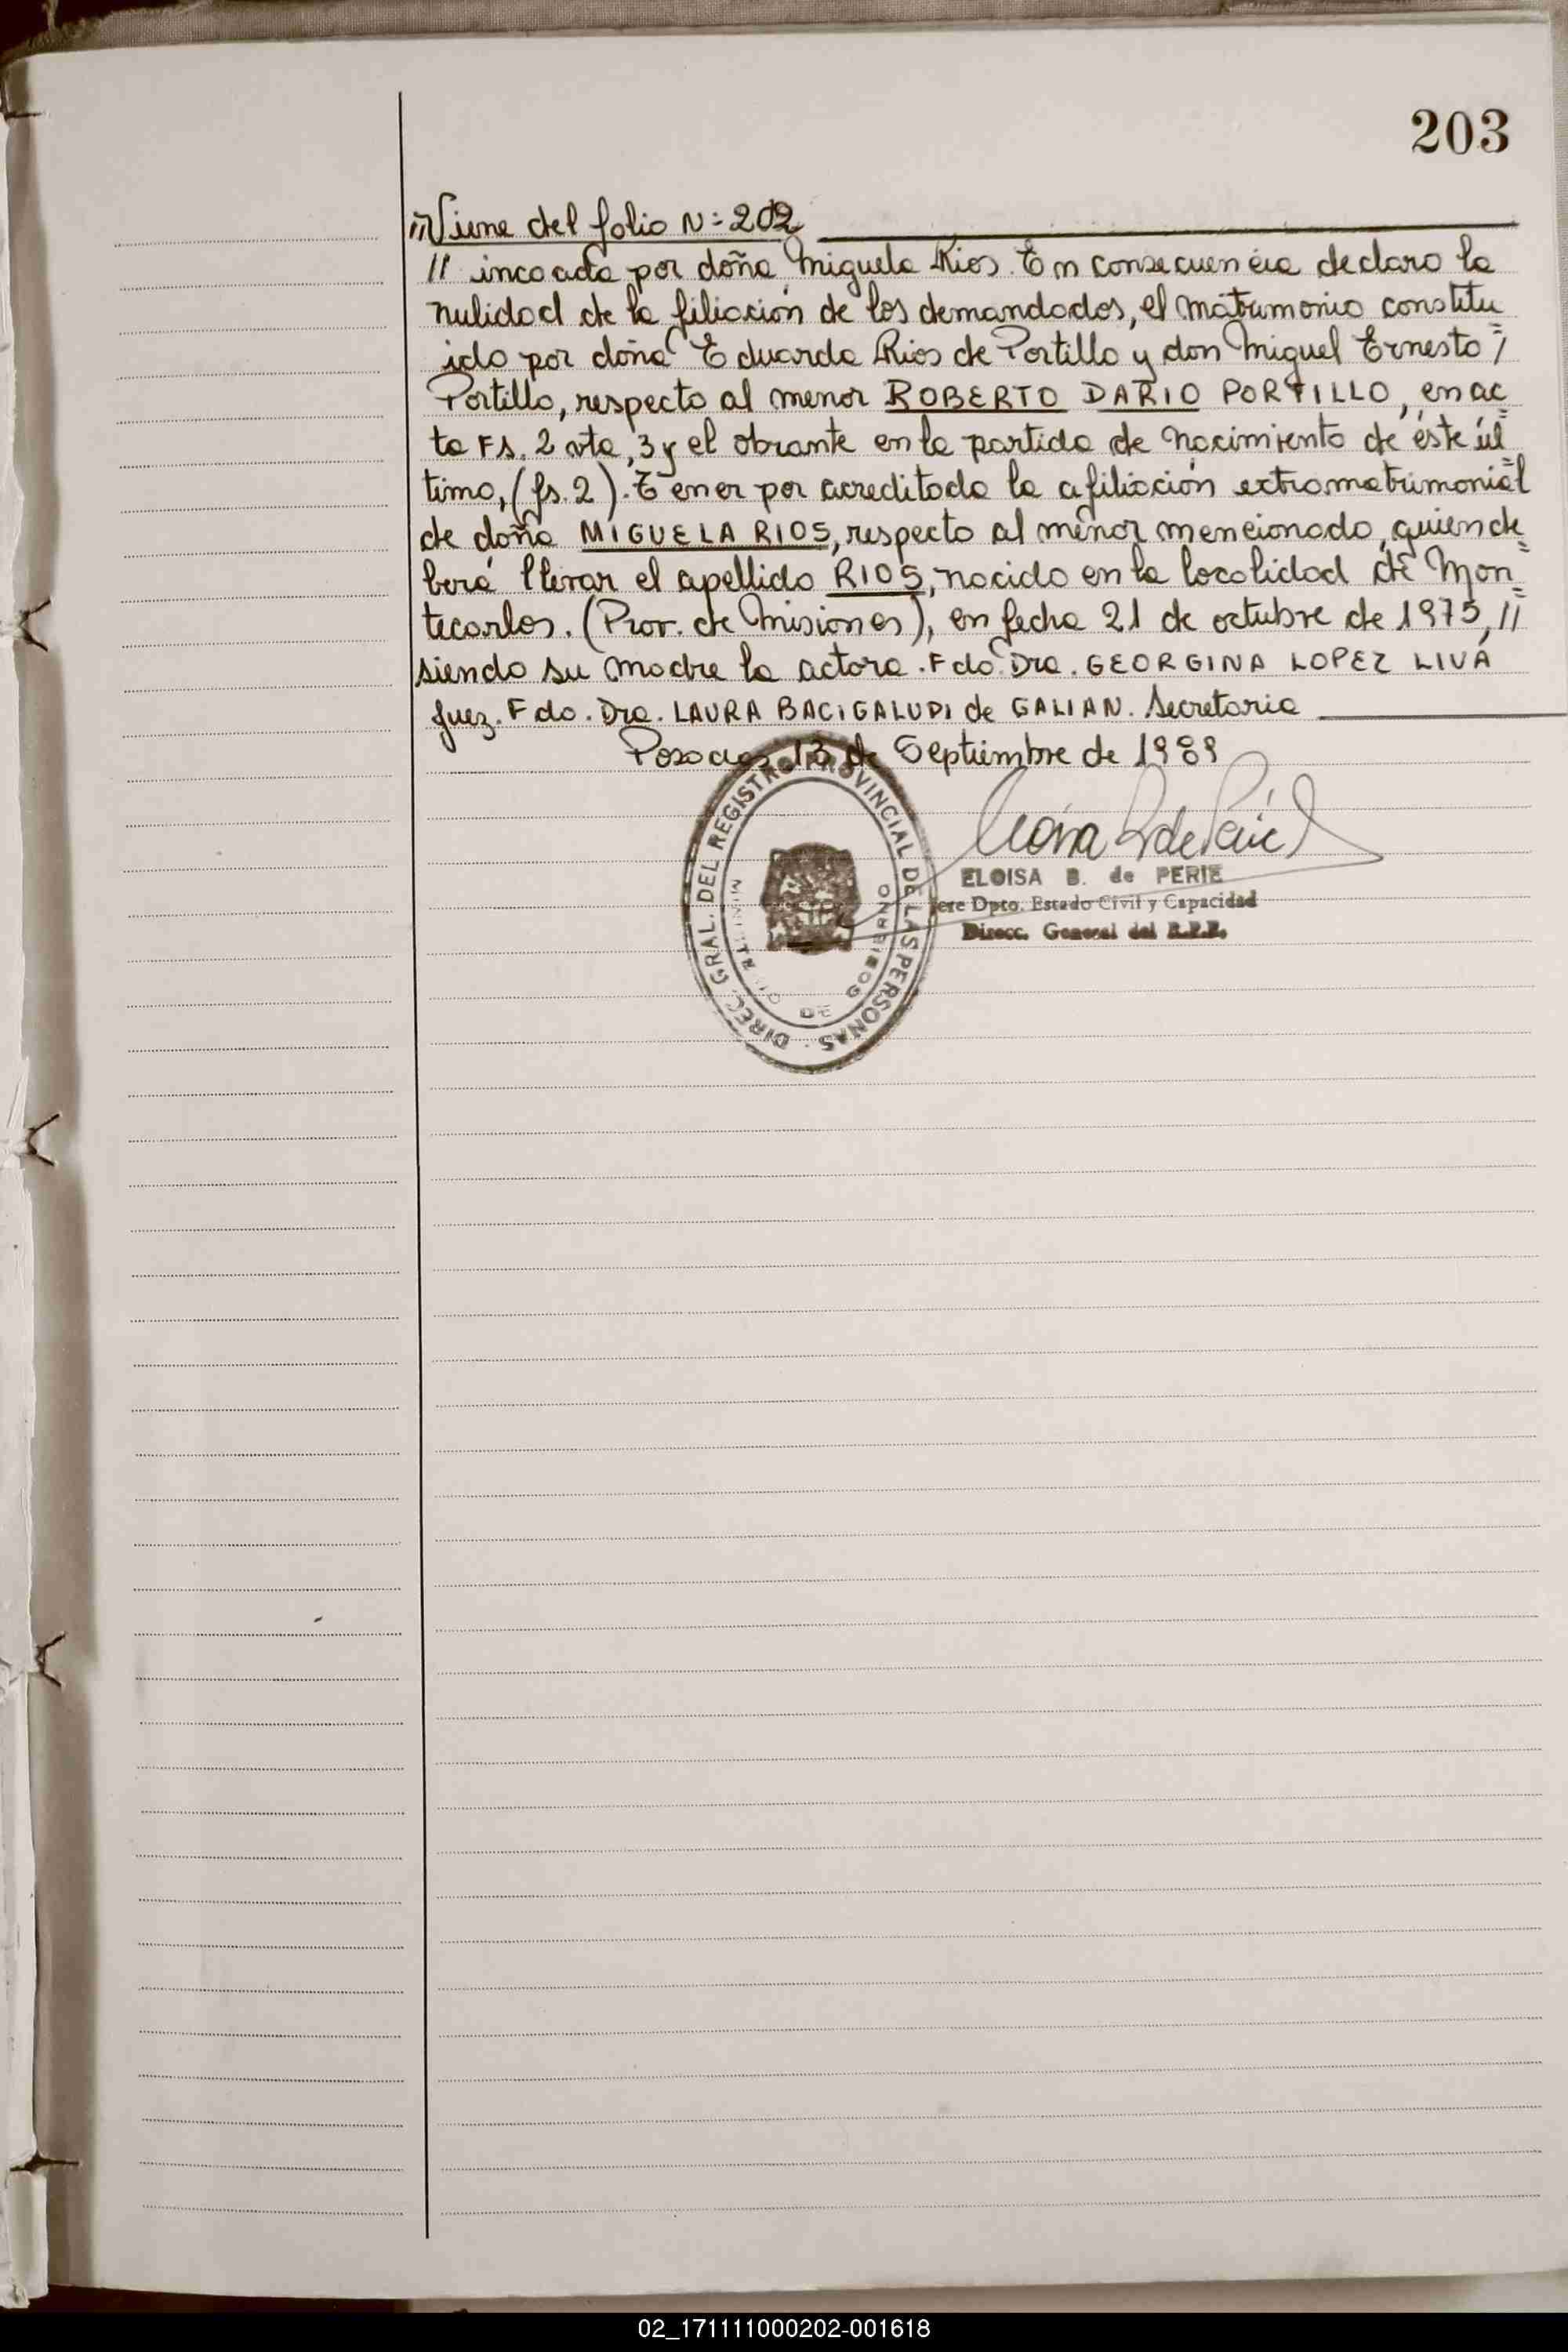 203
//Viene del folio N=202
// incoada por doña Miguela Rios. En consecuencia declaro la
nulidad de la filiación de los demandados, el matrimonio constitu=
ido por doña Eduarda Rios de Portillo y don Miguel Ernesto /
Portillo, respecto al menor ROBERTO DARIO PORTILLO, en ac=
ta Fs. 2 vta, 3 y el obrante en la partida de nacimiento de éste úl=
timo, (fs. 2). Tener por acreditada la afiliación extramatrimonial
de doña MIGUELA RIOS, respecto al menor mencionado, quien de=
berá llevar el apellido RIOS, nacido en la localidad de Mon=
tecarlos. (Prov. de Misiones), en fecha 21 de octubre de 1975, //
siendo su madre la actora. Fdo. Dra. GEORGINA LOPEZ LIVA
Juez. Fdo. Dra. LAURA BACIGALUPI de GALIAN. Secretaria
Posadas, 13 de Septiembre de 1989
DIREC. GRAL. DEL REGISTRO PROVINCIAL DE LAS PERSONAS
MINISTERIO DE GOBIERNO
ELOISA B. de PERIE
Jefe Dpto. Estado Civil y Capacidad
Direcc. General del R.P.P.
02_171111000202-001618